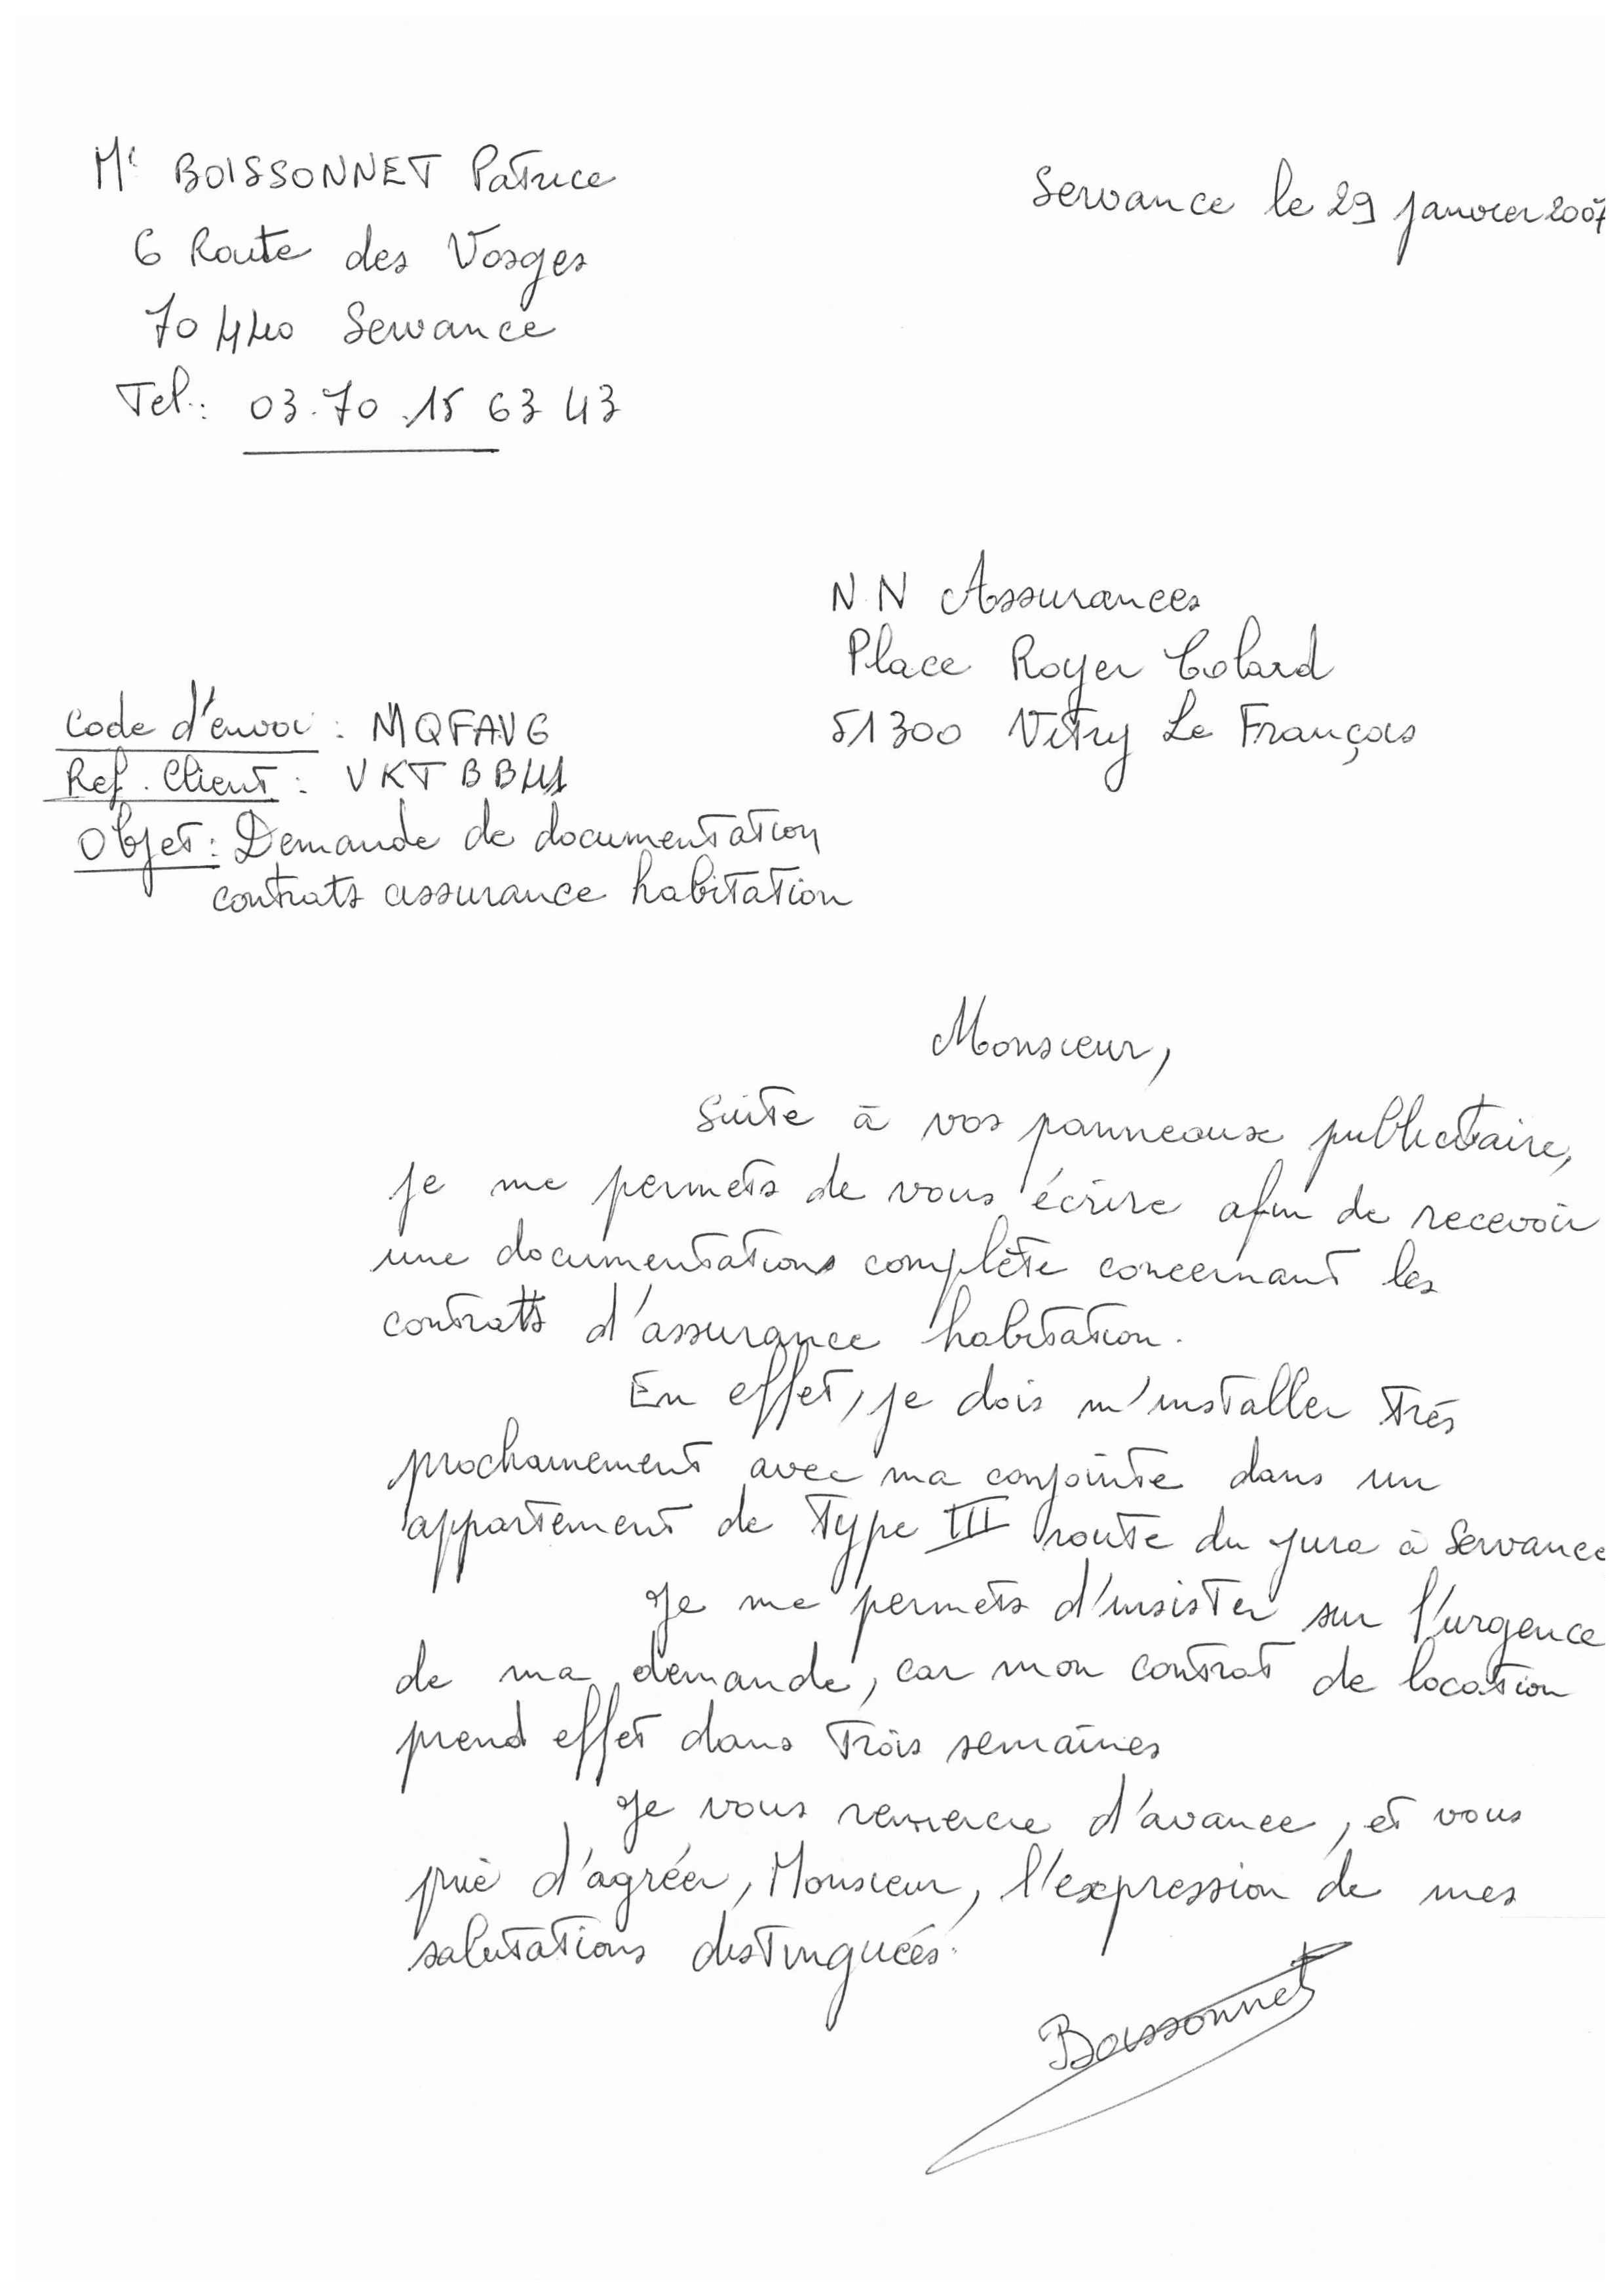 Mr BOISSONNET Patrice
6 Route des Vosges
70440 Servance
Tel.: 03.70.15 63 43
Servance le 29 janvier 2007
N.N Assurances
Place Royer Colard
51300 Vitry Le François
Code d'envoi : MQFAVG
Ref. Client : VKTBB41
Objet : Demande de documentation
contrats assurance habitation
Monsieur,
Suite à vos panneaux publicitaire,
je me permets de vous écrire afin de recevoir
une documentations complète concernant les
contrats d'assurance habitation.
En effet, je dois m'installer très
prochainement avec ma conjointe dans un
appartement de type III route du jura à Servance
Je me permets d'insister sur l'urgence
de ma demande, car mon contrat de location
prend effet dans trois semaines
Je vous remercie d'avance, et vous
prie d'agréer, Monsieur, l'expression de mes
salutations distinguées.
Boissonnet